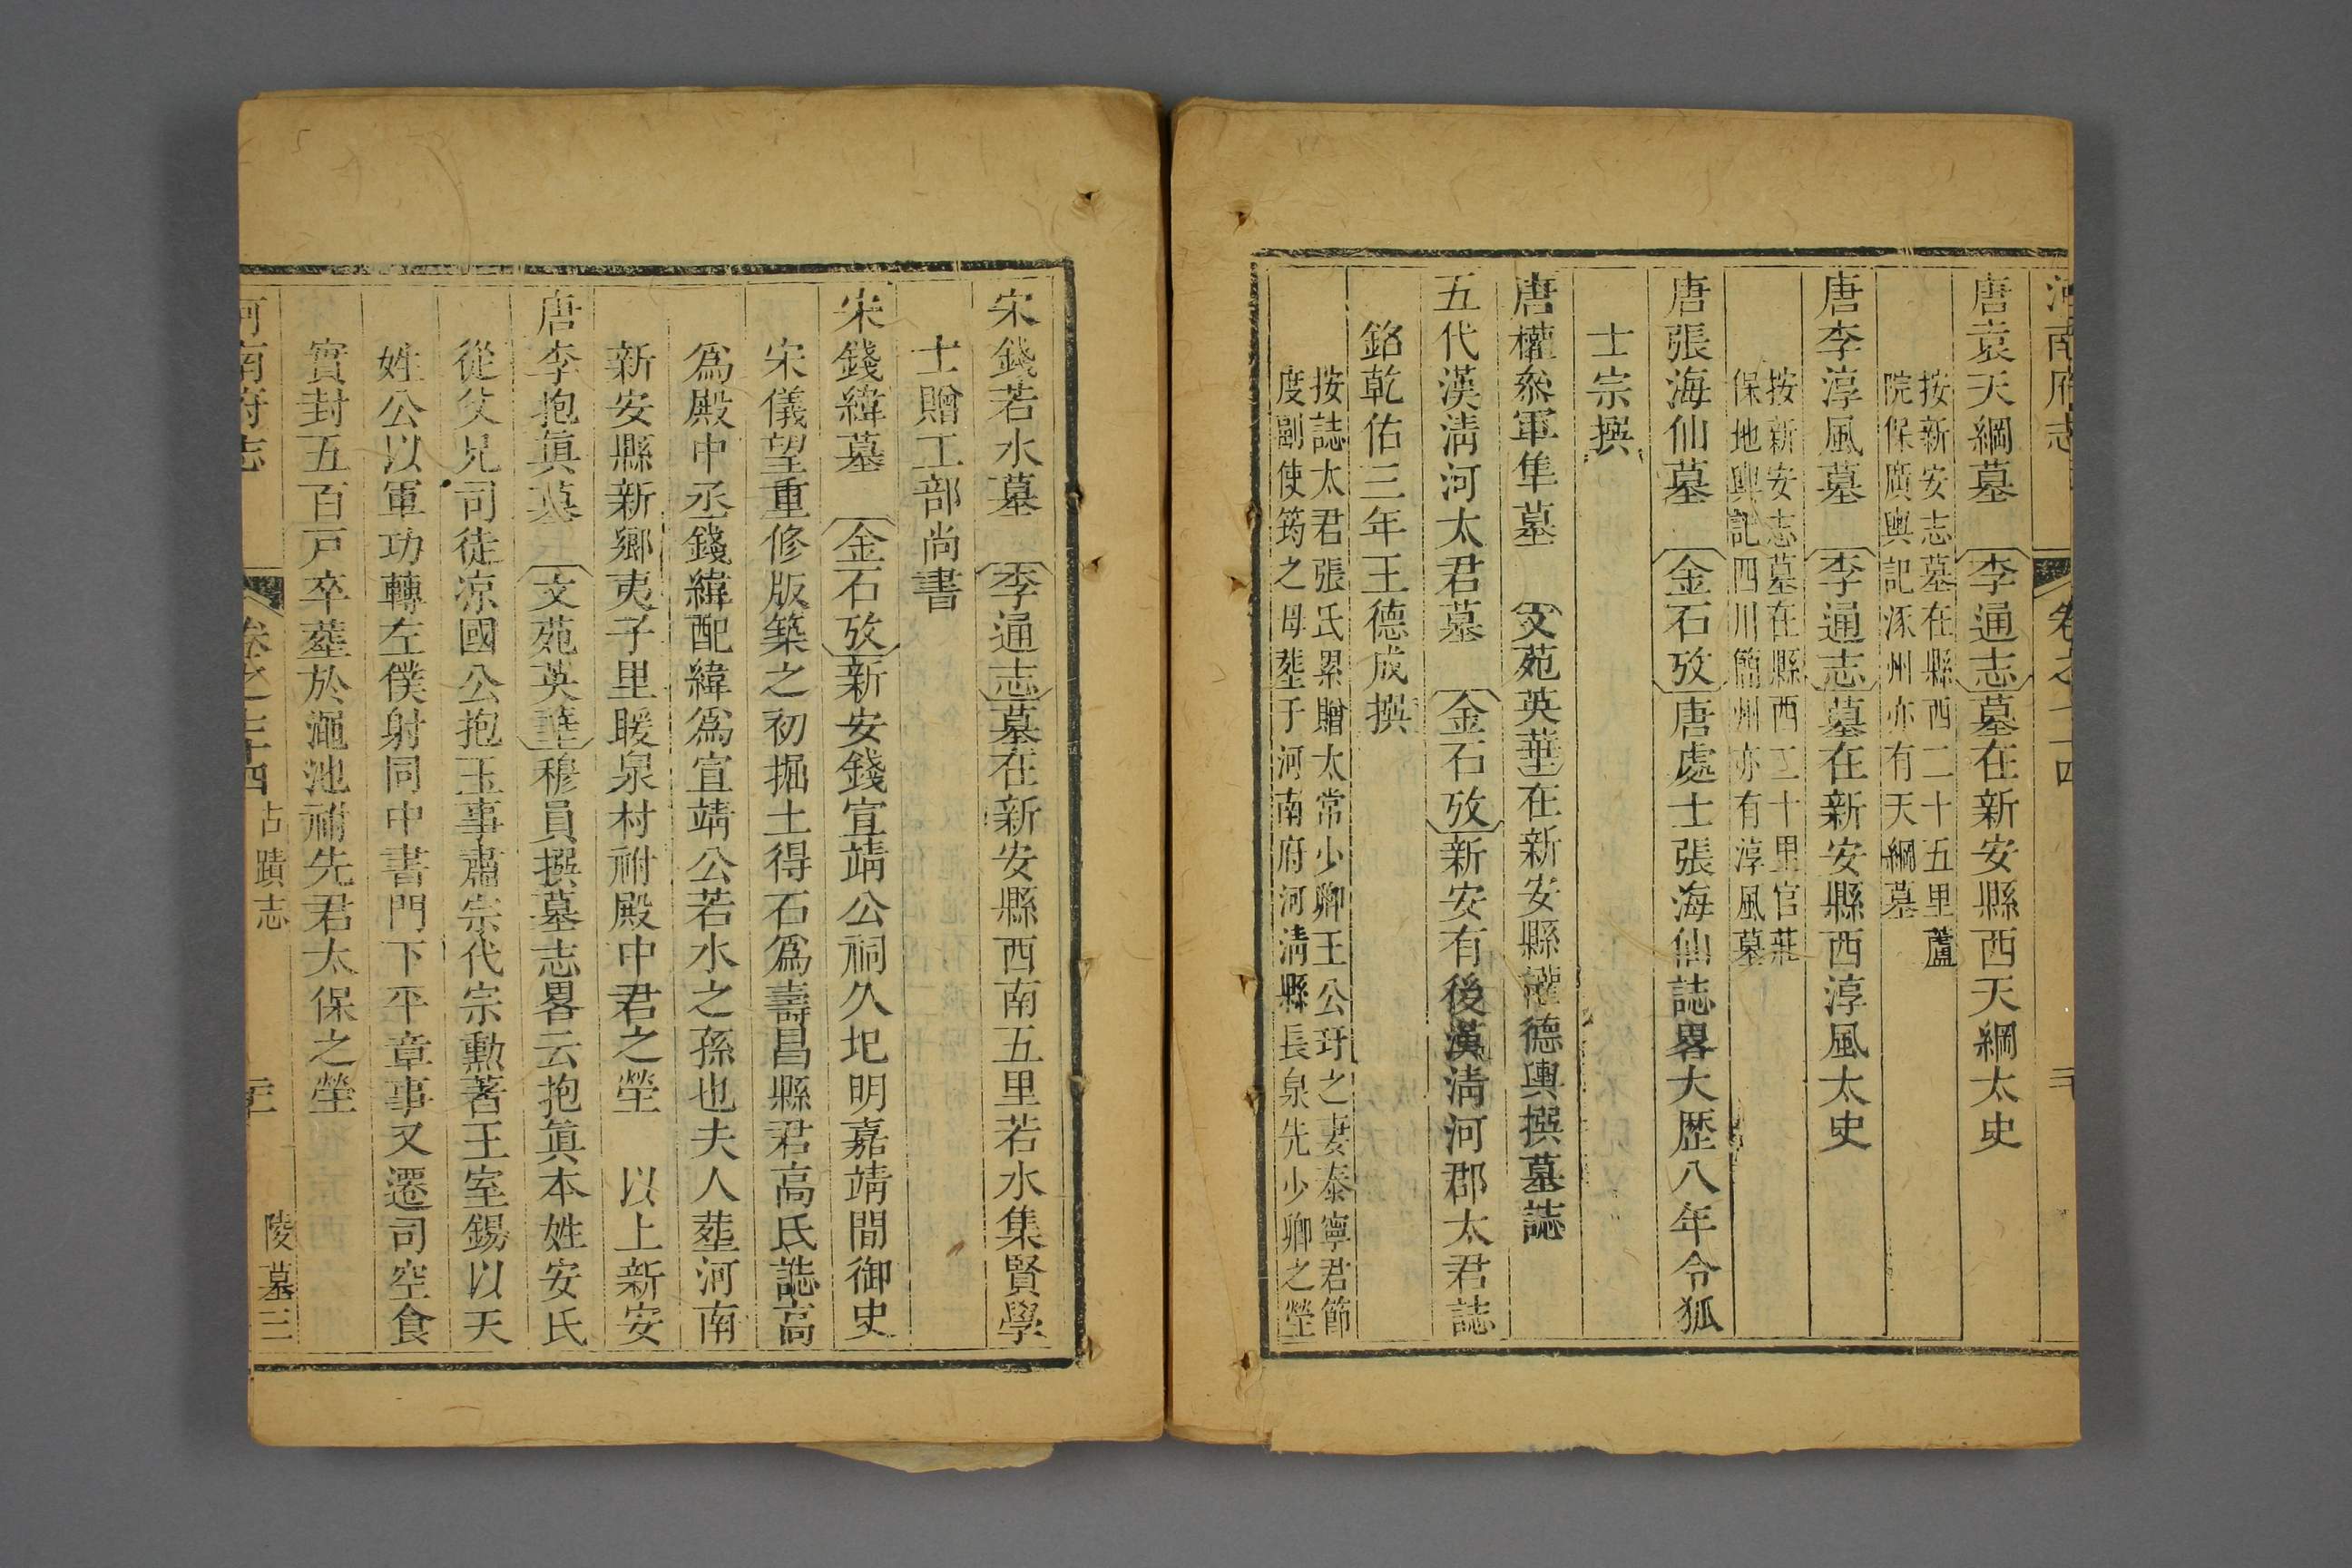 河南府志 卷之 十四
唐袁天綱墓 李通志墓在新安縣西天綱太史
按新安志墓在縣西二十五里蘆
院保廣輿記涿州亦有天綱墓
唐李淳風墓 李通志墓在新安縣西淳風太史
按新安志墓在縣西二十里官莊
保地輿記四川簡州亦有淳風墓
唐張海仙墓 金石攷唐處士張海仙誌畧大歷八年令狐
士宗撰
唐權參軍隼墓 文苑英華在新安縣權德輿撰墓誌
五代漢淸河太君墓 金石攷新安有後漢淸河郡太君誌
銘乾佑三年王德成撰
按誌太君張氏累贈太常少卿王公玗之妻泰寧君節
度副使筠之母塟于河南府河淸縣長泉先少卿之塋
宋錢若水墓 李通志墓在新安縣西南五里若水集賢學
士贈工部尚書
宋錢緯墓 金石攷新安錢宣靖公祠久圮明嘉靖間御史
宋儀望重修版築之初掘土得石爲壽昌縣君高氏誌高
爲殿中丞錢緯配緯爲宣靖公若水之孫也夫人塟河南
新安縣新鄉夷子里暖泉村祔殿中君之塋 以上新安
唐李抱眞墓 文苑英華穆員撰墓志畧云抱眞本姓安氏
從父兄司徒凉國公抱玉事肅宗代宗勲著王室錫以天
姓公以軍功轉左僕射同中書門下平章事又遷司空食
實封五百戸卒塟於澠池祔先君太保之塋
河南府志 卷之 十四 古蹟志 陵墓三